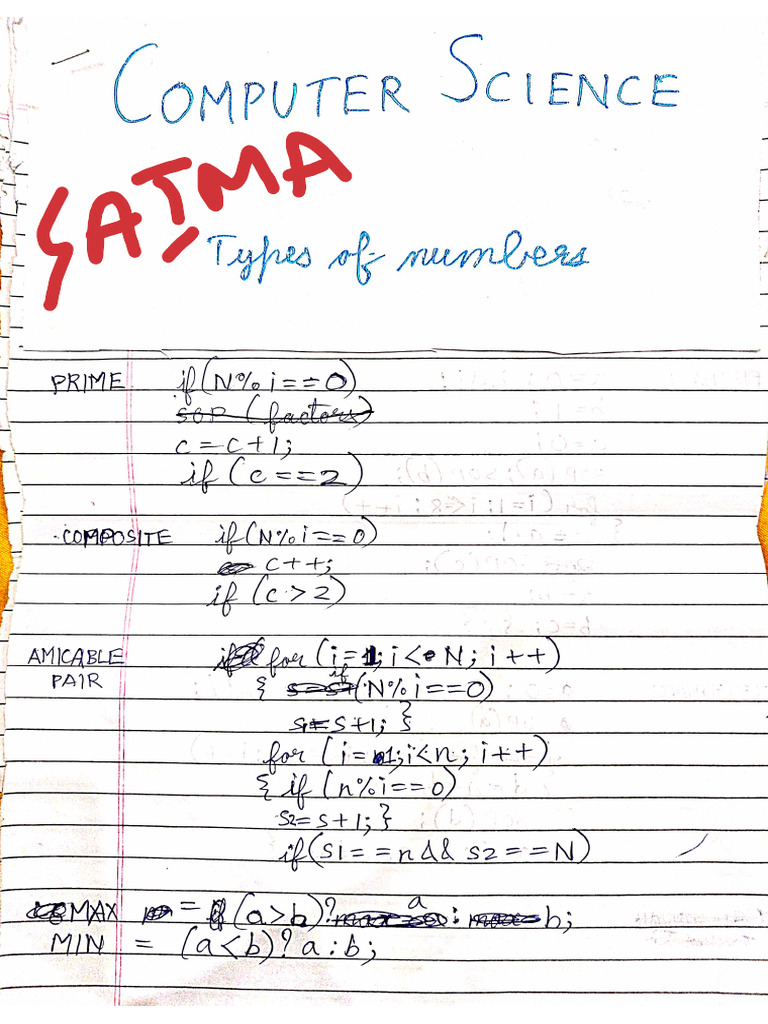 COMPUTER SCIENCE
SATMA
Types of numbers
PRIME if(N%i==0)
SOP (factors)
c=c+1;
if (c==2)
COMPOSITE if(N%i==0)
c++;
if (c>2)
AMICABLE for (i=1;i<N; i++)
PAIR { if (N%i==0)
s1=s+1; }
for (i=1;i<n; i++)
{ if (n%i==0)
s2=s+1; }
if(s1==n && s2==N)
MAX = (a>b)? a : b;
MIN = (a<b)? a : b;